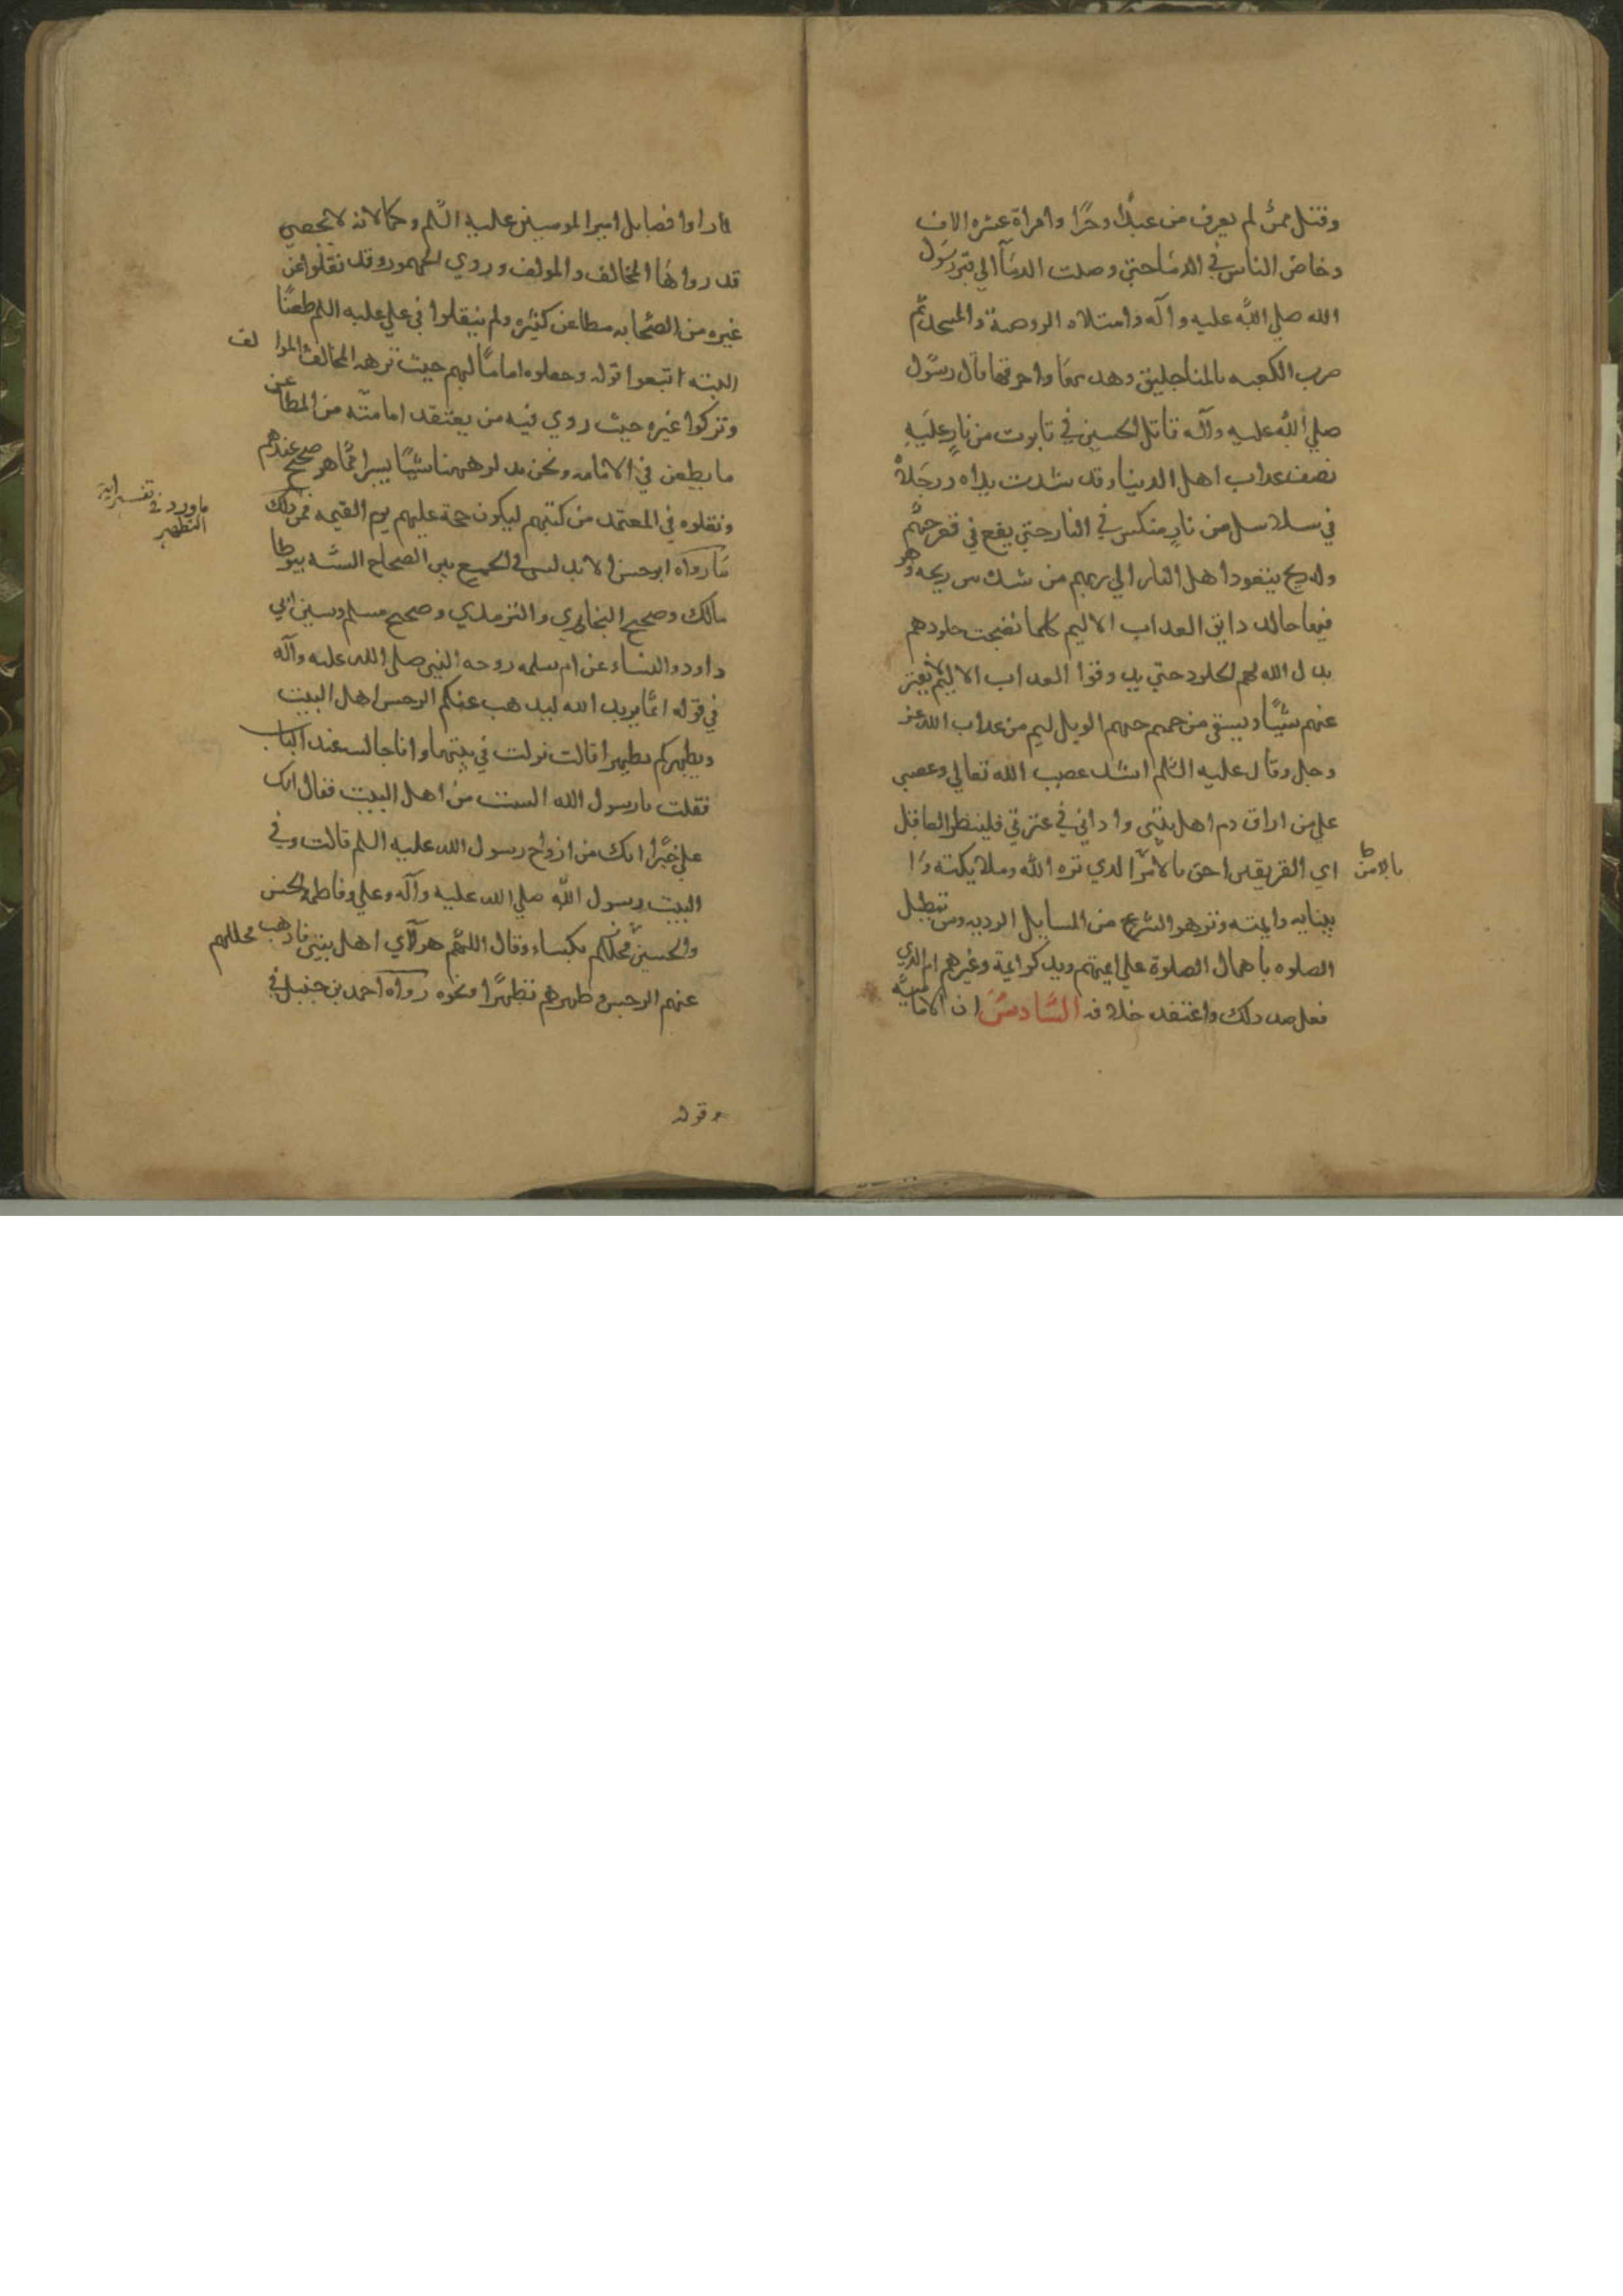 وقتل ممن لم يعرف من عبد وحرا وامراة عشره الاف
وخاض الناس في الدما حتي وصلت الدمآ الي قبر رسول
الله صلي الله عليه وآله وامتلات الروضة والمسجد ثم
ضرب الكعبه بالمناجليق وهدمها واحرقها قال رسول
صلي الله عليه وآله قاتل الحسين في تابوت من نار عليه
نصف عداب اهل الدنيا وقد شدت يداه ورجله
في سلاسل من نار منكس في النار حتي يقع في قعر جهنم
وله ريح يتعود اهل النار الي ربهم من شدة ريحه وهو
فيها خالد دايق العداب الاليم كلما نضجت جلودهم
بدل الله لهم الجلود حتي يدوقوا العداب الاليم لا يفتر
عنهم شيئا ويسقي من حميم جهنم الويل لهم من عداب الله عز
وجل وقال عليه السلم اشتد غضب الله تعالي وغضبي
علي من اراق دم اهل بيتي واداني في عترتي فلينظر العاقل
اي الفريقين احق بالامن الدي نزه الله وملايكته وا
بالامن ط
نبيايه وايمته ونزهوا الشرع من المسايل الرديه ومن تبطيل
الصلوه باهمال الصلوة علي ايمتهم ويدكر ايمة وغيرهم ام الدي
فعل ضد دلك واعتقد خلافه السادس ان الامامية
لما راوا فضايل امير المومنين عليه السلم وكمالاته لا تحصي
قد رواها المخالف والمولف وروي الجمهور وقد نقلوا عن
غيره من الصحابه مطاعن كثيره ولم ينقلوا في علي عليه السلم طعنا
البته اتبعوا قوله وجعلوه اماما لهم حيث نزهه المخالف الموا لف
وتركوا غيره حيث روي فيه من يعتقد امامته من المطاعن
ما يطعن في الامامه ونحن مدكر ههنا شيئا يسيرا مما هو صحيح عندهم
ونقلوه في المعتمد من كتبهم ليكون حجة عليهم يوم القيمه فمن دلك
ما ورد في تفسير اية
التطهير
ما رواه ابو حسن الاندلسي في الجمع بين الصحاح السته بموطا
مالك وصحيح البخاري والترمدي وصحيح مسلم وسنن ابي
داود والنساء عن ام سلمه زوجه النبي صلي الله عليه وآله
في قوله انما يريد الله ليدهب عنكم الرجس اهل البيت
ويطهركم تطهيرا قالت نزلت في بيتها وانا جالسه عند الباب
فقلت يا رسول الله الست من اهل البيت فقال انك
علي خير انك من ازواج رسول الله عليه السلم قالت وفي
البيت رسول الله صلي الله عليه وآله وعلي وفاطمه والحسن
والحسين فجللهم بكساء وقال اللهم هولآي اهل بيتي فادهب مجللهم
عنهم الرجس وطهرهم تطهيرا ونحوه رواه احمد بن حنبل في
وقوله